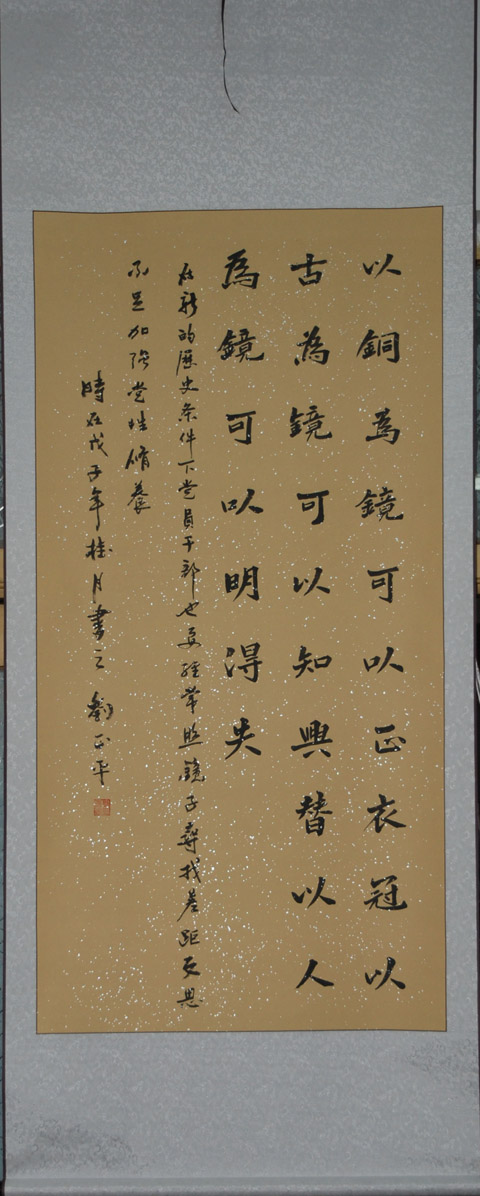 以銅為鏡可以正衣冠以
古為鏡可以知興替以人
為鏡可以明得失
在新的歷史条件下党員干部也要經常照鏡子尋找差距反思
不足加强党性脩養
時在戊子年桂月書之 劉正平